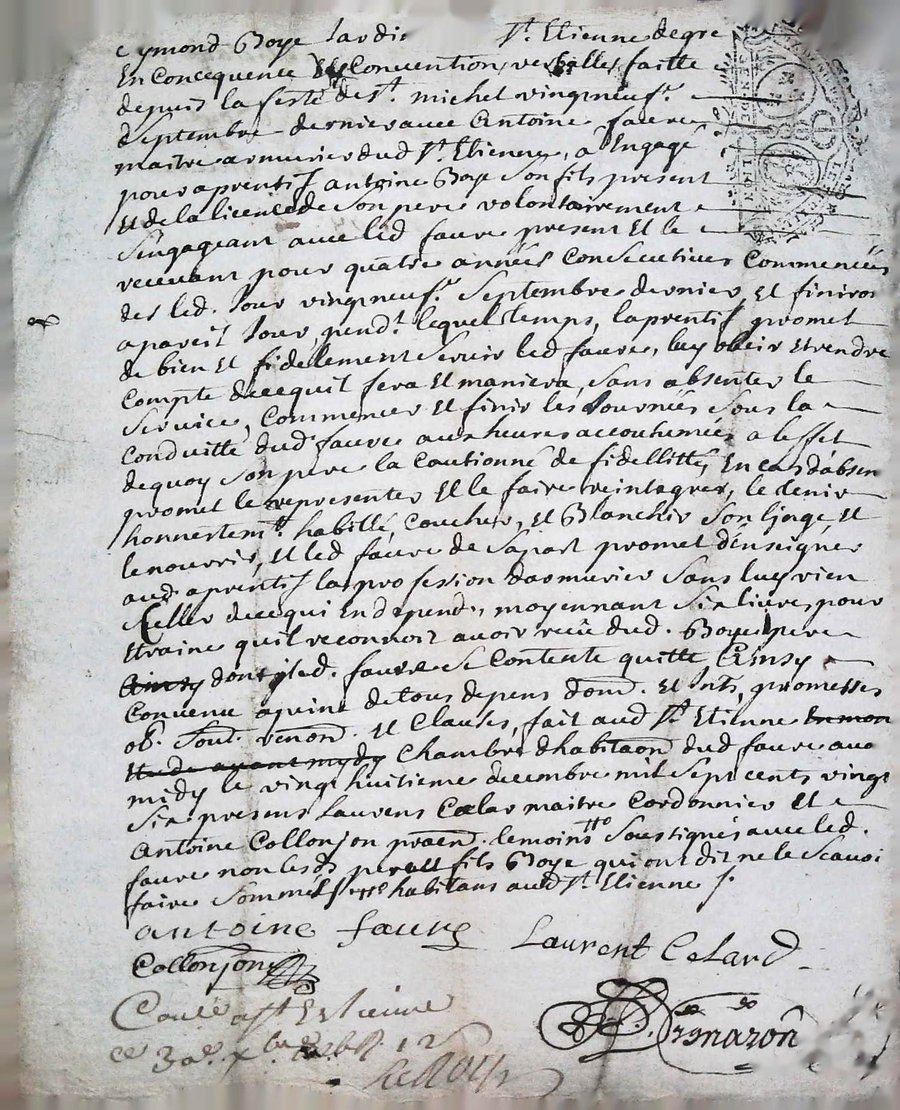 eymond Boye Jardi St. Etienne de gre
En Concequence des Convention verballes faitte
depuis la feste de st. michel vingtneufe.
Septembre dernier avec Antoine faure
maitre armurier dud St. Etienne, à Engagé
pour aprentif antoine Boye Son fils present
Et de la licence de Son pere volontairement
S'engageant avec led faure present Et le
recevant pour quatre années Consecutives Commencées
des led. Jour vingneufe. Septembre dernier, Et finiron
a pareil Jour, pendt. lequel temps, laprentif promet
de bien Et fidelement Servir led faure, luy obeir Et rendre
Compte de ce quil fera Et maniera, Sans absenter le
Service, Commencer Et finir les Journées Sous la
Conduitte dud faure aux heures accoutumées a leffet
dequoy Son pere la Cautionné de fidellitté, En cas dabsen
promet le representer Et le faire reintegrer, le tenir
honnestemt. habillé, Coucher, Et Blanchir Son linge, Et
le nourrir, Et led faure de Sa part promet denseigner
aud. aprentif la profession darmurier Sans luy rien
Celler de ce qui En depend, moyennant Six livres pour
Etraine quil reconnoit avoir reçu dud. Boye pere
Ainsy dont led. faure Se Contente quitte Ainsy
Convenu a peine de tous depens dom. Et Ints, promesses
ob. Soum. renon. Et Clauses, fait aud St. Etienne En mon
Etude avant mydy Chambre dhabitaon dud faure avant
midy le vingt huitieme decembre mil Sept cents vingt
Six presens Laurens Celar maitre Cordonnier Et
Antoine Collonjon praen. temoins Soussignés avec led.
faure non lesds pere Et fils Boye qui ont dit ne le Scavoi
faire Sommés habitans aud St. Etienne
antoine faure Laurent Celard
Collonjon
Conté a St Estienne
ce 30e. 12